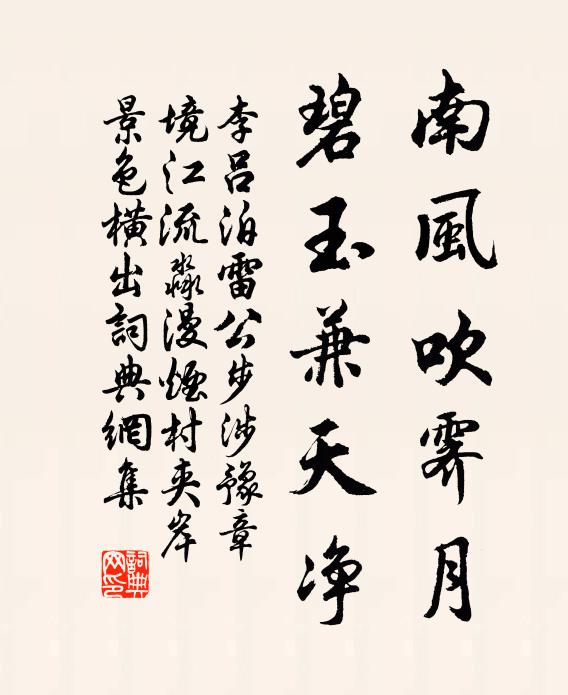 南風吹霽月
碧玉兼天净
李呂泊雷公步涉豫章
境江流淼漫煙村夾岸
景色橫出詞典網集
詞典
网印